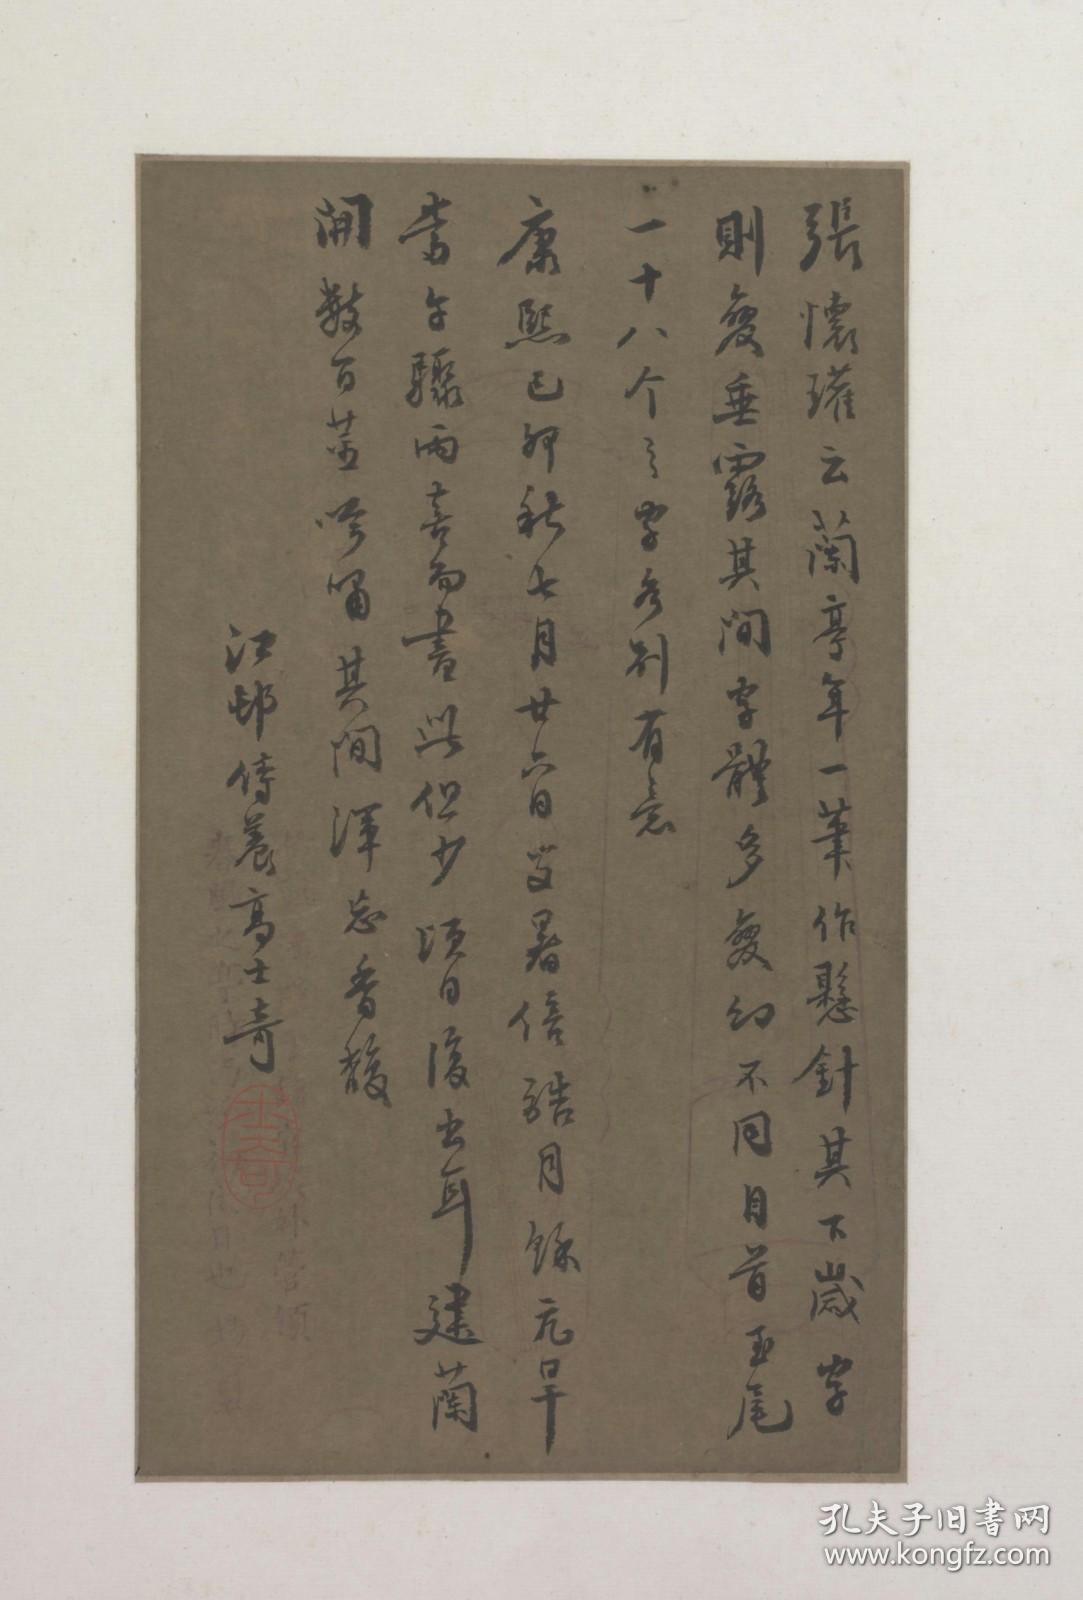 張懷瓘云蘭亭年一筆作懸針其下歲字
則變垂露其間字體多變幻不同自首至尾
一十八个之字各別有意
康熙己卯秋七月廿六日毒暑倍誥月餘亢旱
當午驟雨喜而書此但少頃日復出耳建蘭
開數百莖吟嘯其間渾忘香馥
江邨侍養高士奇
士奇
孔夫子旧书网
www.kongfz.com